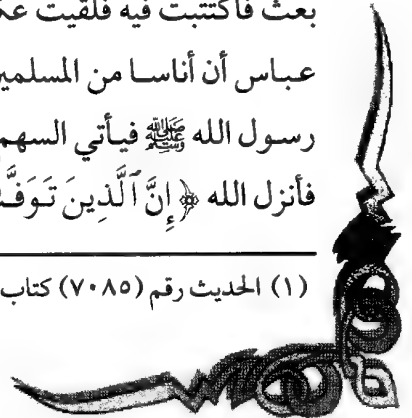 بعث فاكتتبت فيه فلقيت
عباس أن أناسا من
رسول الله ﷺ فيأتي السهم
فأنزل الله ﴿ إِنَّ ٱلَّذِينَ
(١) الحديث رقم (٧٠٨٥) كتاب